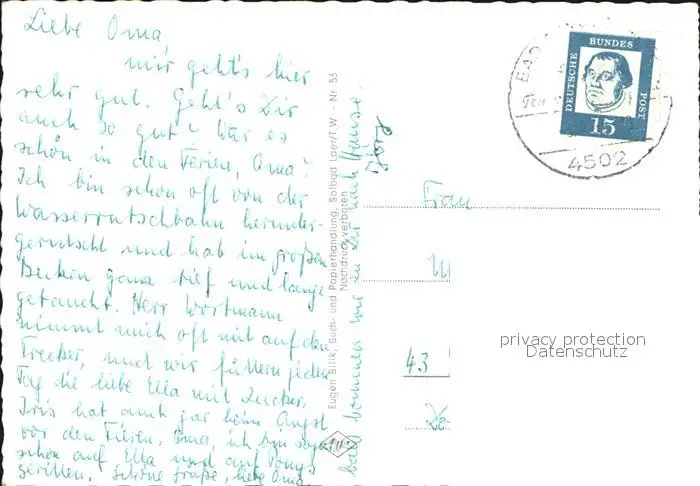 Liebe Oma,
mir geht's hier
sehr gut. Geht's Dir
auch so gut? War es
schön in den Ferien, Oma?
Ich bin schon oft von der
Wasserrutschbahn herunter-
gerutscht und hab im großen
Becken ganz tief und lange
getaucht. Herr Wortmann
nimmt mich oft mit auf den
Trecker, und wir füttern jeden
Tag die liebe Ella mit Zucker.
Iris hat auch gar keine Angst
vor den Tieren. Oma, ich bin sogar
schon auf Ella und auf Ponys
geritten. Schöne Grüße, liebe Oma
bald kommen wir zu Dir nach Hause.
Jörg
Eugen Bilik, Buch- und Papierhandlung, Solbad Laer/T.W. - Nr. 55
Nachdruck verboten
BAD
4502
DEUTSCHE
BUNDES
POST
15
Frau
43
privacy protection
Datenschutz